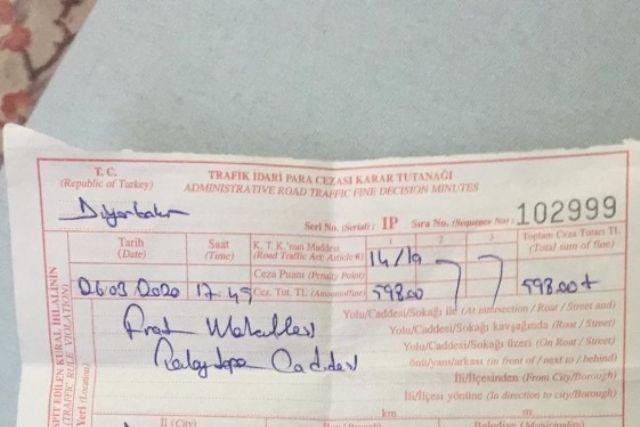 T. C.
(Republic of Turkey)
TRAFİK İDARİ PARA CEZASI KARAR TUTANAĞI
ADMINISTRATIVE ROAD TRAFFIC FINE DECISION MINUTES
Diyarbakır
Seri No. (Serial) : IP Sıra No. (Sequence No) : 102999
Tarih
(Date)
Saat
(Time)
K. T. K. 'nun Maddesi
(Road Traffic Act: Article #)
1 2 3
Toplam Ceza Tutarı TL
(Total sum of fine)
14/19
Ceza Puanı (Penalty Point)
06 03 2020 17 45 Cez. Tut. TL (Amount of fine) 598.00 598.00 t
Fırat Mahallesi
Caddesi
Yolu/Caddesi/Sokağı ile (At intersection / Road / Street and)
Yolu/Caddesi/Sokağı kavşağında (Road / Street)
Yolu/Caddesi/Sokağı üzeri (On Road / Street)
önü/yanı/arkası (in front of / next to / behind)
İli/İlçesinden (From City/Borough)
İli/İlçesi yönüne (In direction to city/Borough)
km m
SPİT EDİLEN KURAL İHLALİNİN
(TRAFFIC RULE VIOLATION)
Yeri (Location)
İl (City)
Belediye (Municipality)